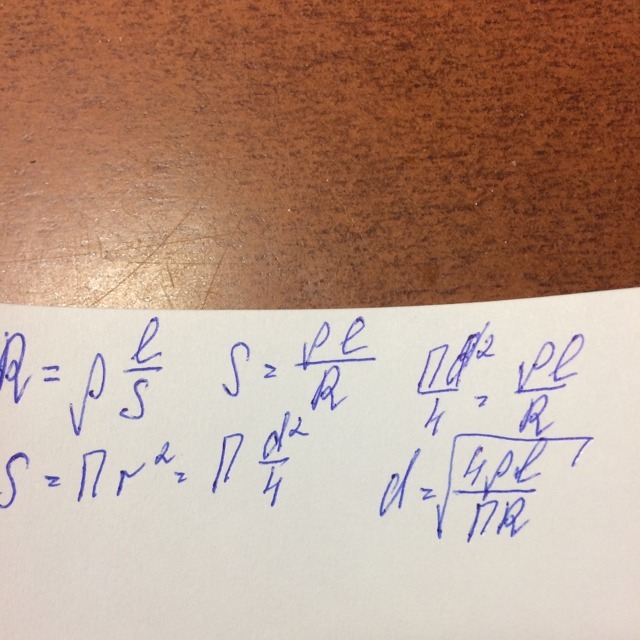 R = ρ l/S   S = ρl/R   Πd²/4 = ρl/R
S = Πr² = Π d²/4   d = √(4ρl/ΠR)